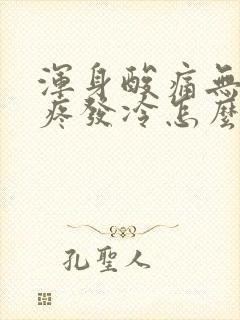 渾身酸痛無
疼發冷怎麼
孔聖人